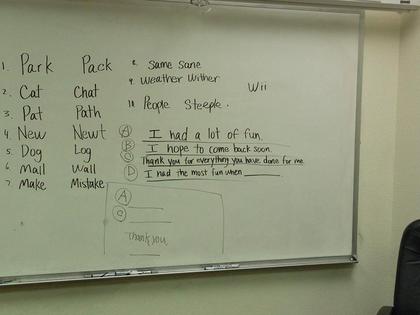 1. Park Pack
2. Cat Chat
3. Pat Path
4. New Newt
5. Dog Log
6. Mall Wall
7. Make Mistake
8. Same Sane
9. Weather Wither
Wii
10. People Steeple.
A I had a lot of fun.
B I hope to come back soon.
C Thank you for everything you have done for me.
D I had the most fun when ______.
A
C
Thank you,